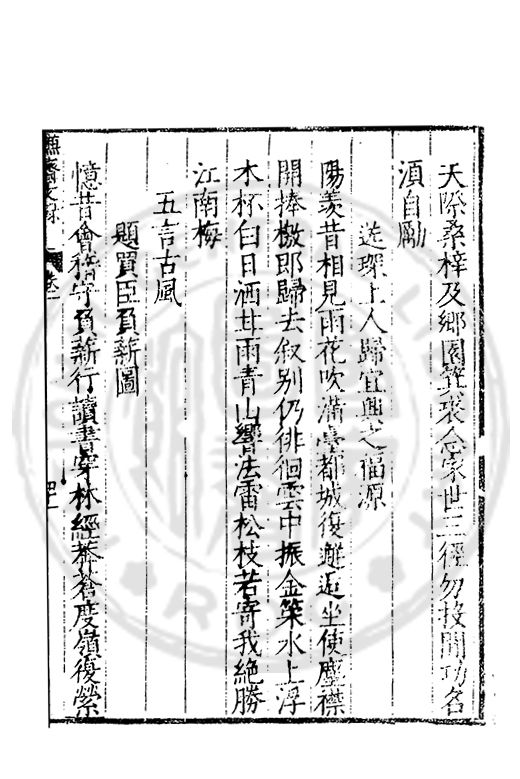 天際桑梓及鄉園箕裘念家世三徑勿投閒功名
須自勵
送琛上人歸宜興之福源
陽羨昔相見雨花吹滿臺都城復邂逅坐使塵襟
開捧檄即歸去叙別仍徘徊雲中振金策水上浮
木杯白日洒甘雨青山響法雷松枝若寄我絶勝
江南梅
五言古風
題買臣負薪圖
憶昔會稽守負薪行讀書穿林經莽蒼度嶺復縈